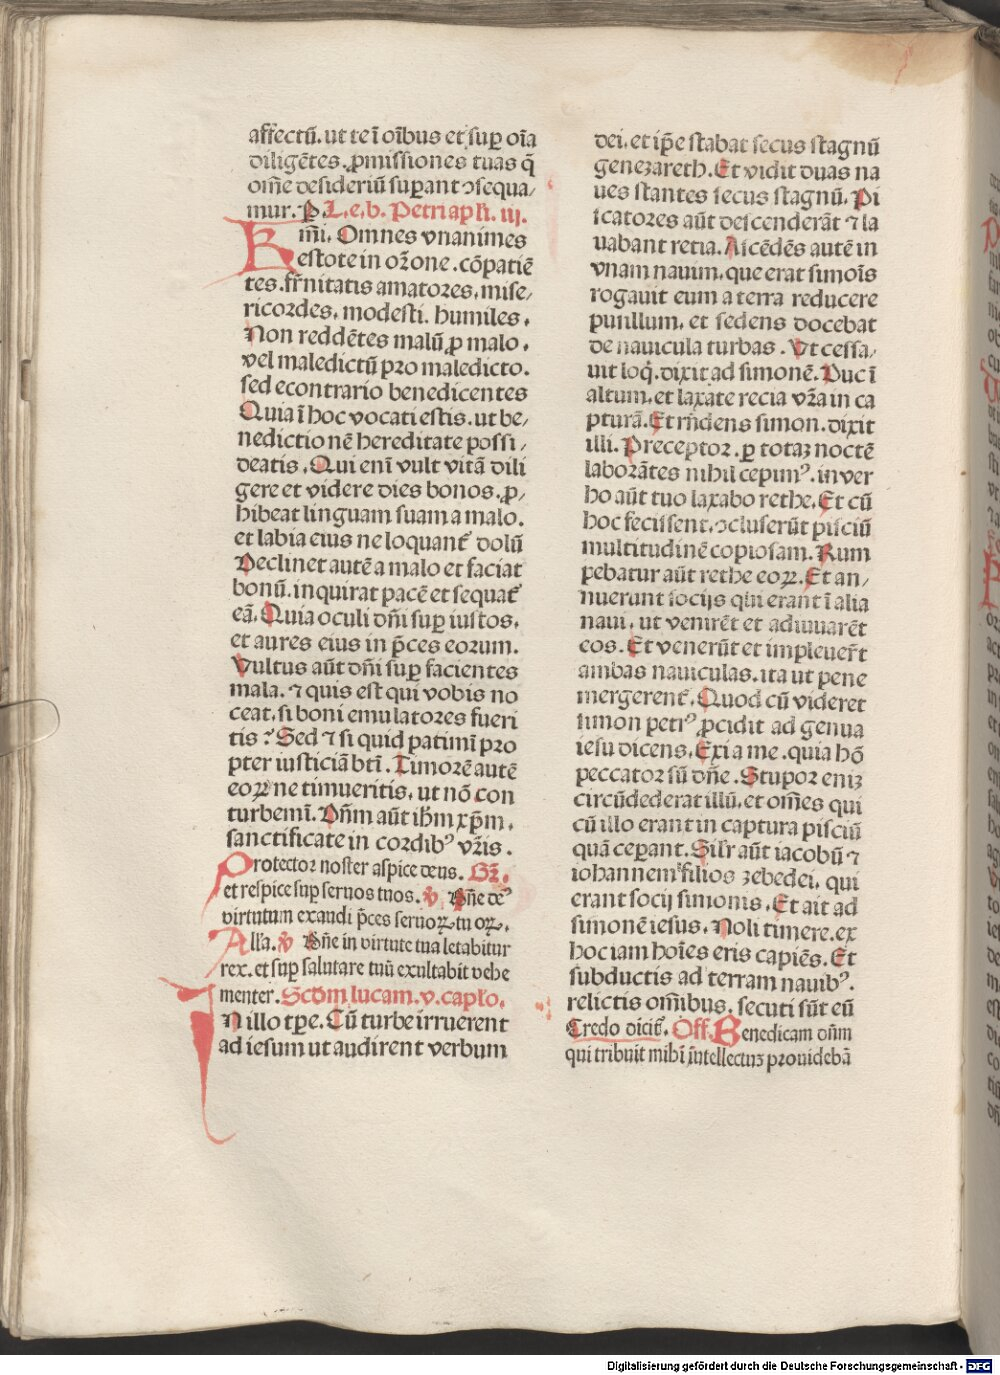 affectū. ut te ī oībus et sup̱ oīa
diligētes. ꝓmissiones tuas q̄
om̄e desideriū sup̱ant ꝯsequa/
mur. P̱ L. e. b. Petri apl̄i. iij.
Kimī. Omnes vnanimes
estote in oꝛ̄one. cōpatiē
tes. fr̄nitatis amatoꝛes. mise/
ricoꝛdes. modesti. humiles.
Non reddētes malū ꝓ malo.
vel maledictū pro maledicto.
sed econtrario benedicentes
Quia ī hoc vocati estis. ut be/
nedictionē hereditate possi/
deatis. Qui enī vult vitā dili
gere et videre dies bonos. ꝓ/
hibeat linguam suam a malo.
et labia eius ne loquant᷑ dolū
Declinet autē a malo et faciat
bonū. inquirat pacē et sequat᷑
eā. Quia oculi dn̄i sup̱ iustos.
et aures eius in p̄ces eorum.
Vultus aūt dn̄i sup̱ facientes
mala. ⁊ quis est qui vobis no
ceat. si boni emulatores fueri
tis? Sed ⁊ si quid patimī pro
pter iusticiā btī. Timorē autē
eoꝝ ne timueritis. ut nō con
turbemī. Dn̄m aūt ihm̄ xp̄m.
sanctificate in coꝛdibꝰ vr̄is.
Protector noster aspice deus. Gr̄.
et respice sup̱ seruos tuos. v̄ Dn̄e deꝰ
virtutum exaudi p̄ces seruoꝝ tuoꝝ.
All'a. v̄ Dn̄e in virtute tua letabitur
rex. et sup̱ salutare tuū exultabit vehe
menter. Scd̄m lucam. v. capl̄o.
In illo tp̄e. Cū turbe irruerent
ad iesum ut audirent verbum
dei. et ip̄e stabat secus stagnū
geneꝫareth. Et vidit duas na
ues stantes secus stagnū. Pi
scatores aūt descenderāt ⁊ la
uabant retia. Ascēdēs autē in
vnam nauim. que erat simoīs
rogauit eum a terra reducere
pusillum. et sedens docebat
de nauicula turbas. Vt cessa/
uit loq̇. dixit ad simonē. Duc ī
altum. et laxate recia vr̄a in ca
pturā. Et rn̄dens simon. dixit
illi. Preceptor. p̱ totaꝫ noctē
laborātes nihil cepimꝰ. in ver
bo aūt tuo laxabo rethe. Et cū
hoc fecissent. ꝯcluserūt pisciū
multitudinē copiosam. Rum
pebatur aūt rethe eoꝝ. Et an/
nuerunt socijs qui erant ī alia
naui. ut venirēt et adiuuarēt
eos. Et venerūt et impleuer̄t
ambas nauiculas. ita ut pene
mergerent᷑. Quod cū videret
simon petrꝰ ꝓcidit ad genua
iesu dicens. Exi a me. quia hō
peccator sū dn̄e. Stupor eniꝫ
circūdederat illū. et om̄es qui
cū illo erant in captura pisciū
quā cep̱ant. Silr̄ aūt iacobū ⁊
iohannem filios ꝫebedei. qui
erant socij simonis. Et ait ad
simonē iesus. Noli timere. ex
hoc iam hoīes eris capiēs. Et
subductis ad terram nauibꝰ.
relictis om̄ibus. secuti sūt eū
Credo dicit᷑. Off. Benedicam dn̄m
qui tribuit mihi īntellectuꝫ prouidebā
Digitalisierung gefördert durch die Deutsche Forschungsgemeinschaft - DFG